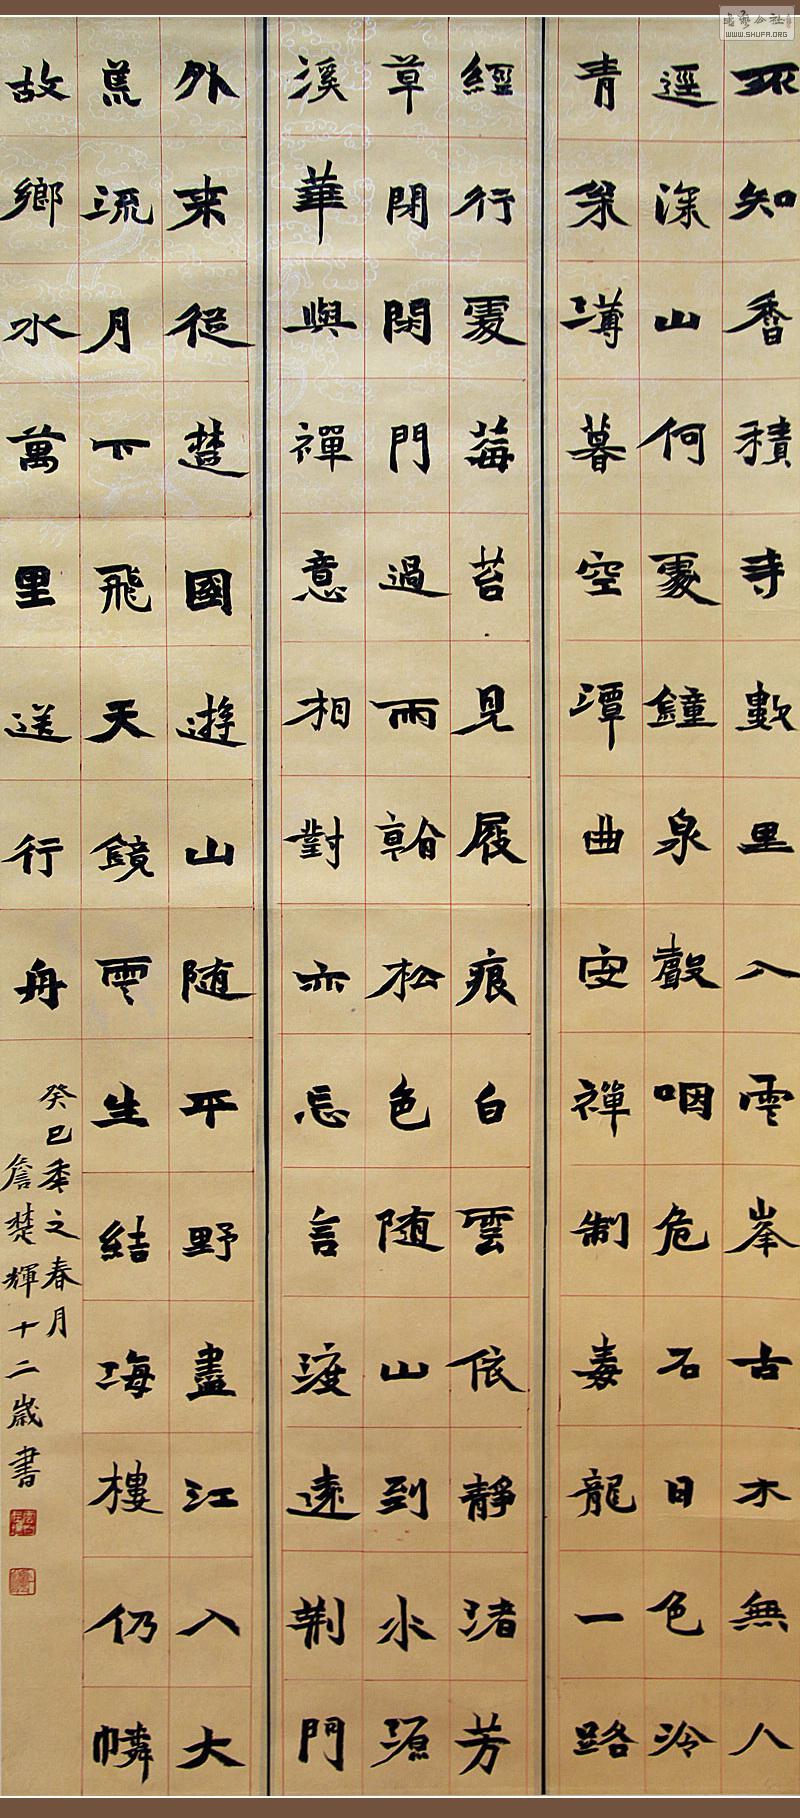 不知香積寺數里入雲峯古木無人
逕深山何處鐘泉聲咽危石日色冷
青松薄暮空潭曲安禪制毒龍一路
經行處莓苔見履痕白雲依靜渚芳
草閉閑門過雨看松色随山到水源
溪華與禪意相對亦忘言渡遠荆門
外来從楚國遊山随平野盡江入大
荒流月下飛天鏡雲生結海樓仍憐
故鄉水萬里送行舟
癸巳年之春月
詹楚輝十二歲書
書藝公社
WWW.SHUFA.ORG